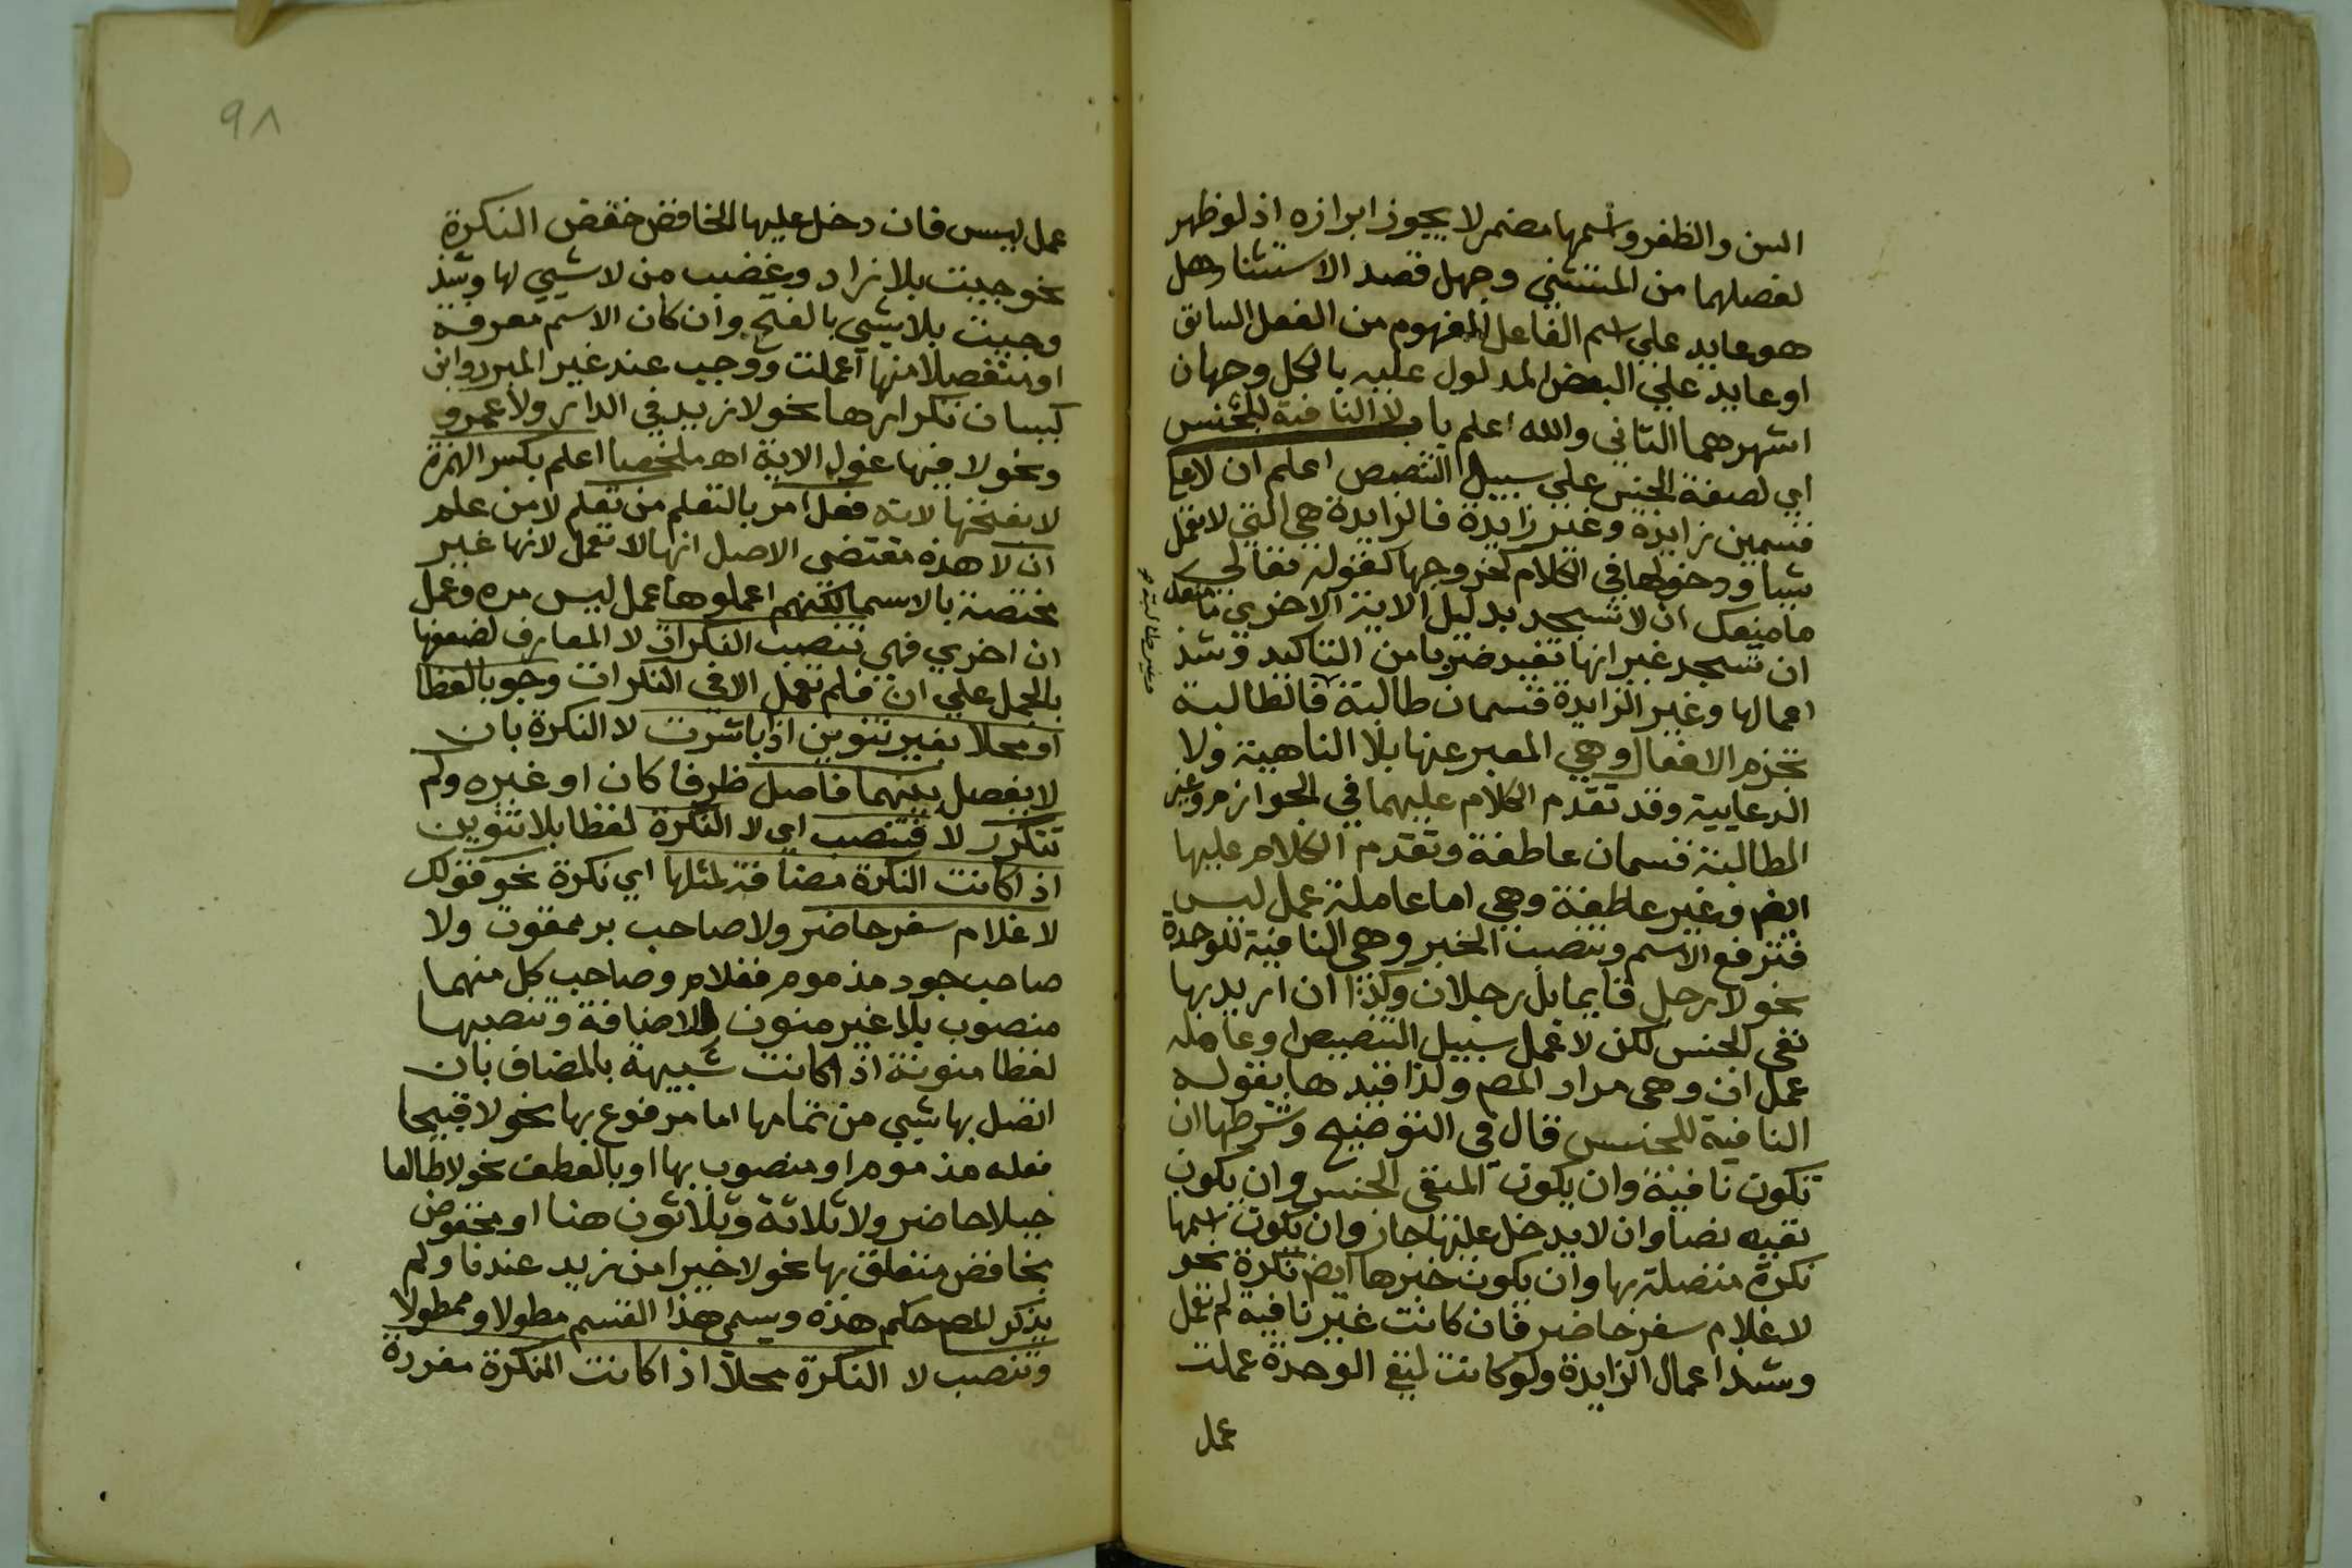 السن والظفر واسمها مضمر لا يجوز ابرازه اذ لو ظهر
لفصلهما من المستثني وجهل قصد الاستثنا وهل
هو عايد علي اسم الفاعل المفهوم من الفعل السابق
او عايد علي البعض المدلول عليه بالكل وجهان
اشهرهما الثاني والله اعلم باب لا النافية للجنس
اي لصفة الجنس علي سبيل التنصيص اعلم ان لا علي
قسمين زايدة وغير زايدة فالزايدة هي التي لا تعمل
شيا ودخولها في الكلام كخروجها كقوله تعالي
ما منعك ان لا تسجد بدليل الاية الاخري ما منعك
ان تسجد غير انها تفيد ضربا من التاكيد وشذ
اعمالها وغير الزايدة قسمان طالبة فالطالبة
وغير طالبة صح
تجزم الافعال وهي المعبر عنها بلا الناهية ولا
الدعايية وقد تقدم الكلام عليهما في الجوازم وغير
الطالبة قسمان عاطفة وتقدم الكلام عليها
ايضم وغير عاطفة وهي اما عاملة عمل ليس
فترفع الاسم وتنصب الخبر وهي النافية للوحدة
نحو لا رجل قايما بل رجلان وكذا ان اريد بها
نفي الجنس لكن لا عمل سبيل التنصيص او عاملة
عمل ان وهي مراد المصم ولذا قيدها بقوله
النافية للجنس قال في التوضيح وشرطها ان
تكون نافية وان يكون المنفي الجنس وان يكون
نفيه نصا وان لا يدخل عليها جار وان يكون اسمها
نكرة متصلة بها وان يكون خبرها ايضم نكرة نحو
لا غلام سفر حاضر فان كانت غير نافية لم تعمل
وشذ اعمال الزايدة ولو كانت لنفي الوحدة عملت
عمل
٩٨
عمل ليس فان دخل عليها الخافض خفض النكرة
نحو جيت بلا زاد وغضب من لا شيي لها وشذ
وجيت بلا شيي بالفتح وان كان الاسم معرفة
او منفصلا منها اهملت ووجب عند غير المبرد وابن
كيسان تكرارها نحو لا زيد في الدار ولا عمرو
ونحو لا فيها غول الاية اهـ ملخصا اعلم بكسر الهمزة
لا بفتحها لانه فعل امر بالتعلم من تعلم لا من علم
ان لا هذه مقتضي الاصل انها لا تعمل لانها غير
مختصة بالاسما لكنهم اعملوها عمل ليس مره وعمل
ان اخري فهي تنصب النكرات لا المعارف لضعفها
بالحمل علي ان فلم تعمل الا في النكرات وجوبا لفظا
او محلا بغير تنوين اذا باشرت لا النكرة بان
لا يفصل بينهما فاصل ظرفا كان او غيره ولم
تتكرر لا فتنصب اي لا النكرة لفظا بلا تنوين
اذا كانت النكرة مضافة لمثلها اي نكرة نحو قولك
لا غلام سفر حاضر ولا صاحب بر ممقوت ولا
صاحب جود مذموم فغلام وصاحب كل منهما
منصوب بلا غير منون للاضافة وتنصبها
لفظا منونة اذا كانت شبيهة بالمضاف بان
اتصل بها شيي من تمامها اما مرفوع بها نحو لا قبيحا
فعله مذموم او منصوب بها او بالعطف نحو لا طالعا
جبلا حاضر ولا ثلاثة وثلاثون هنا او مخفوض
بخافض متعلق بها نحو لا خيرا من زيد عندنا ولم
يذكر المصم حكم هذه ويسمي هذا القسم مطولا وممطولا
وتنصب لا النكرة محلا اذا كانت النكرة مفردة